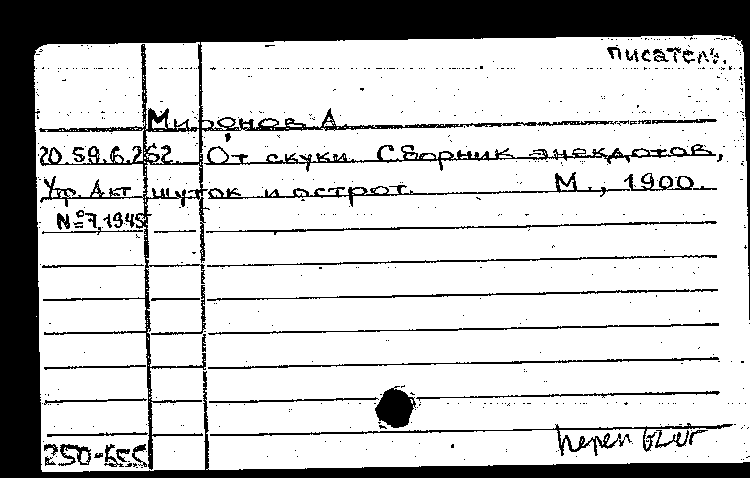 писатель.
Миронов А.
20.59.6.262. От скуки. Сборник анекдотов,
Утр. Акт шуток и острот. М., 1900.
№7, 1945
250-